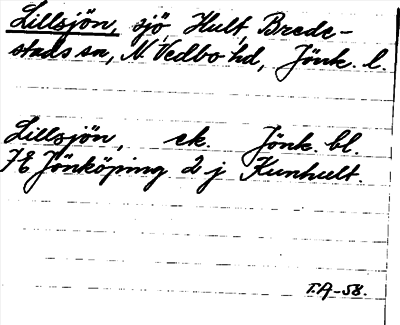 Lillsjön, sjö, Hult, Brede-
stads sn, N. Vedbo hd, Jönk. l.
Lillsjön, ek. Jönk. bl.
7E Jönköping 2 j Kunhult
T.A-58.